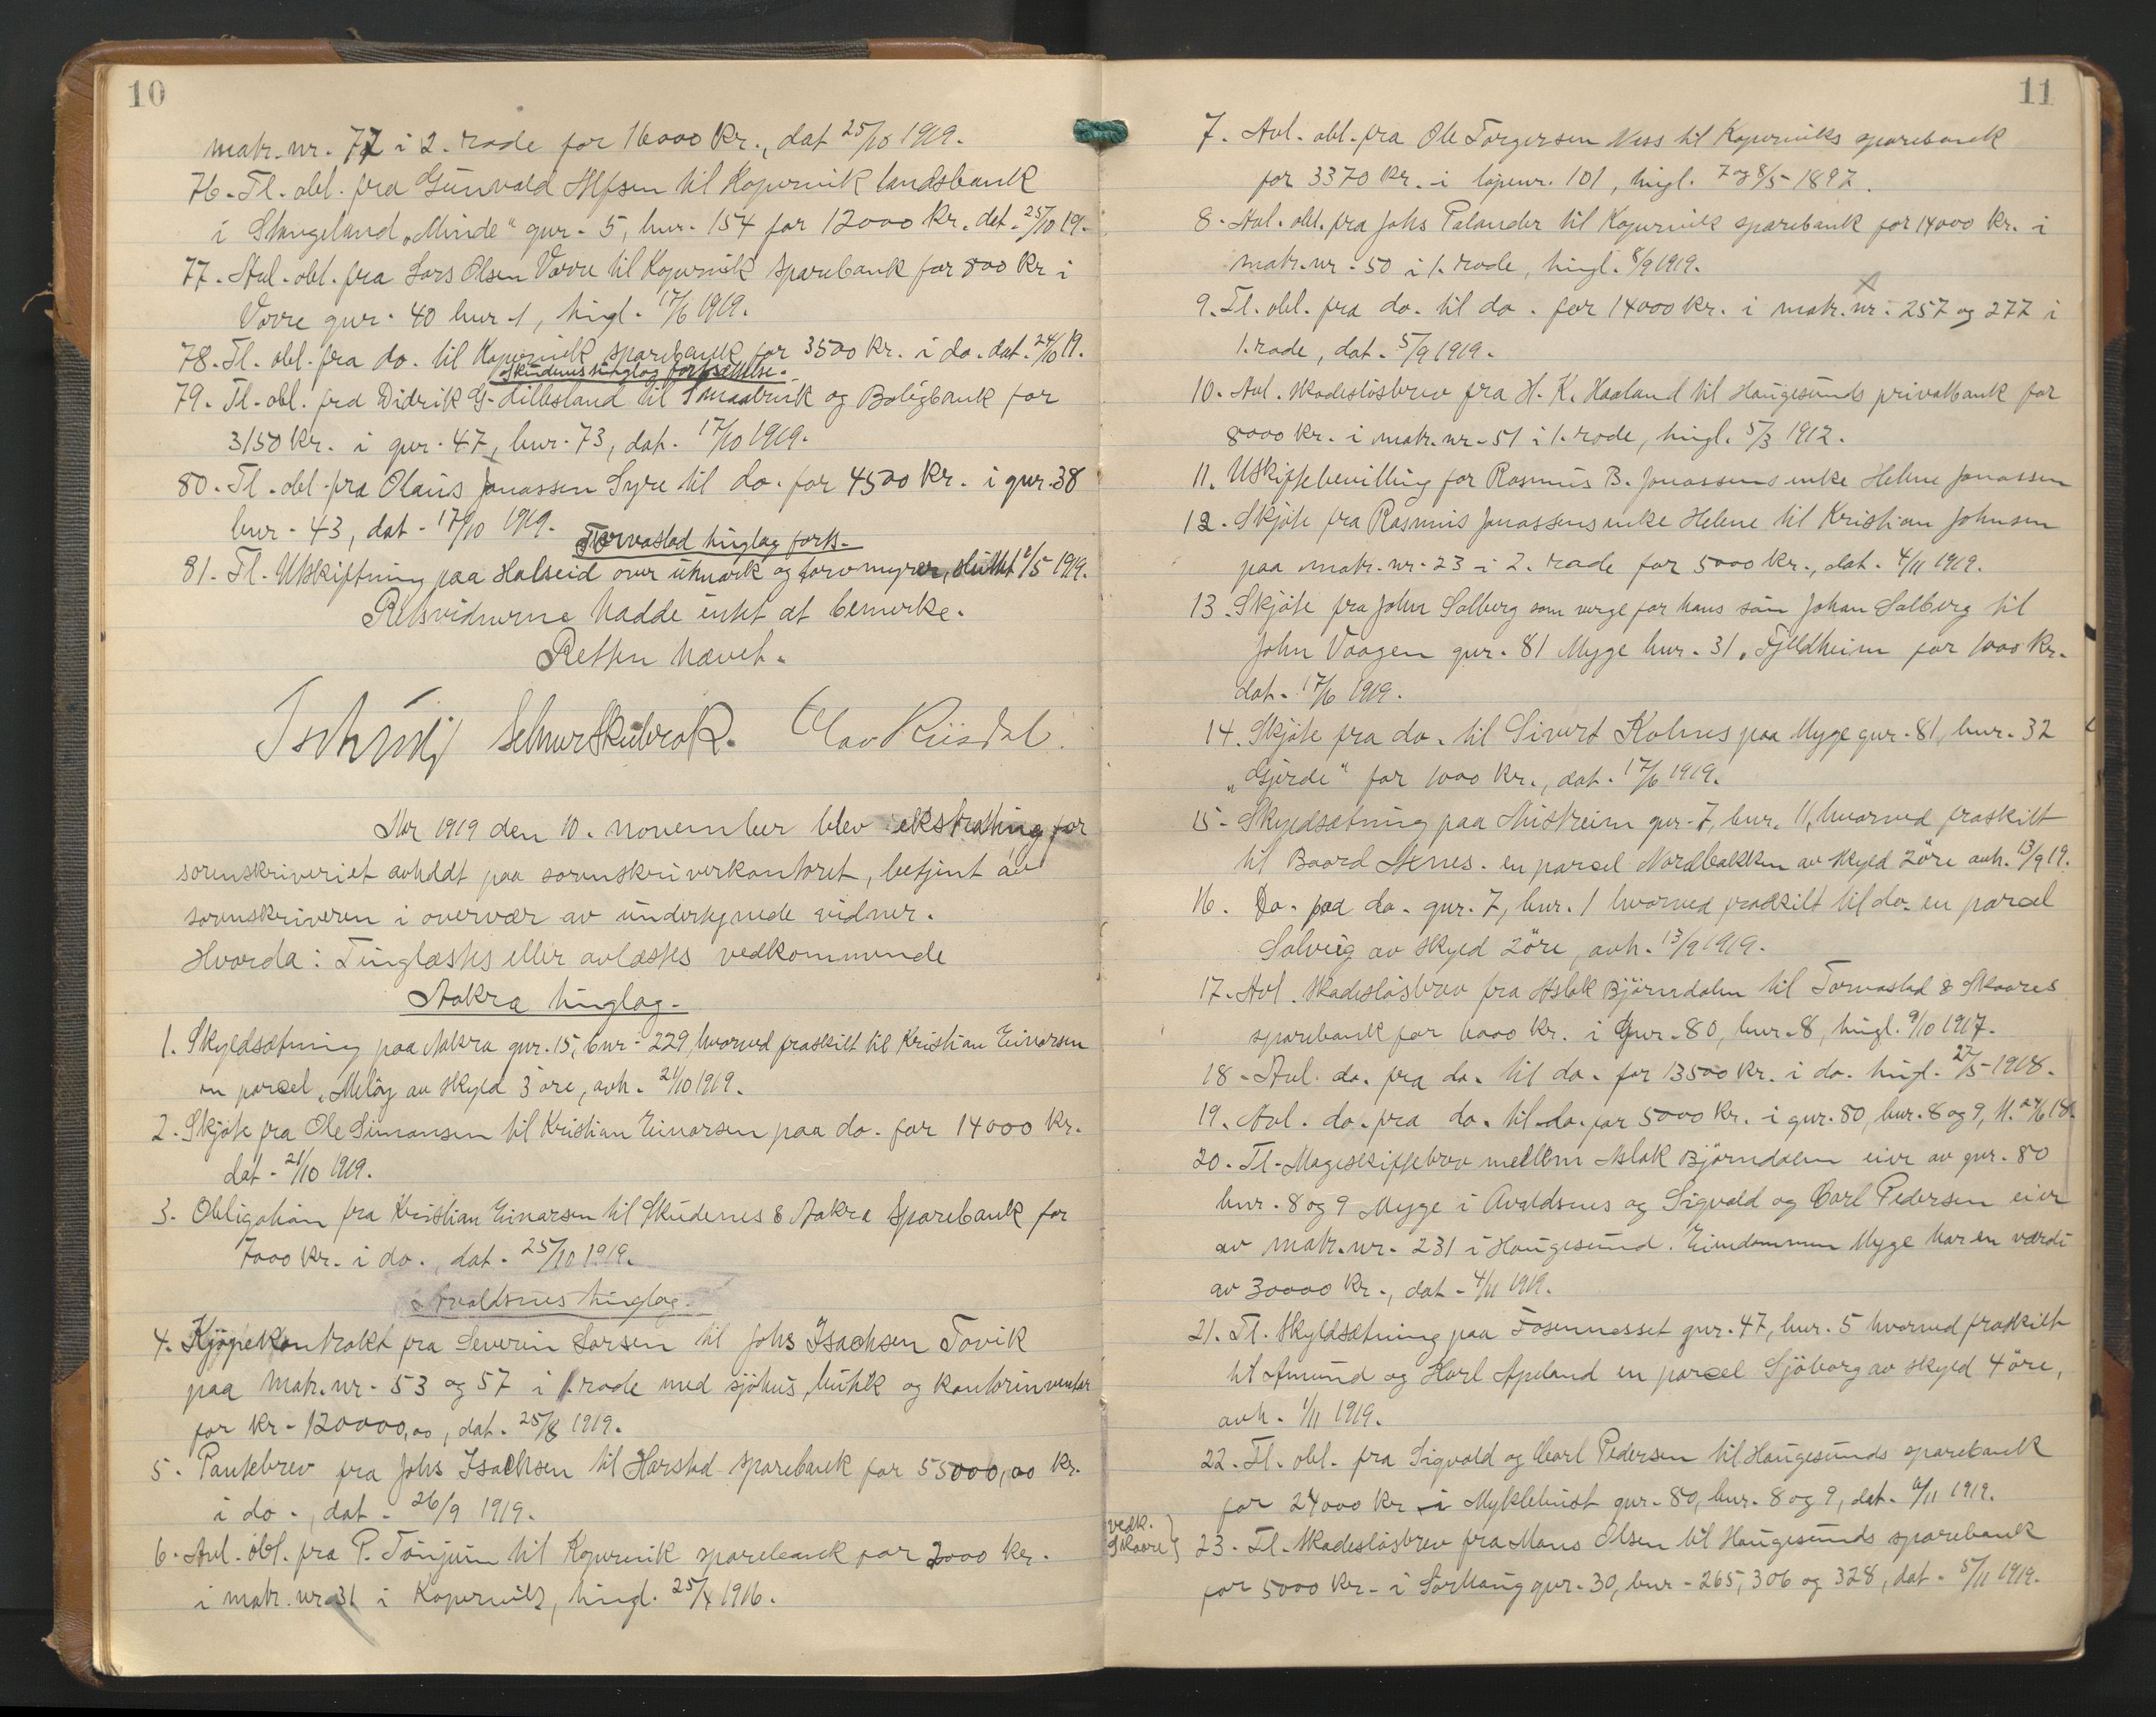 10
matr. nr. 77 i 2. rode for 16000 Kr., dat 25/10 1919.
76. Tl. obl. fra Gunvald Alfsen til Kopervik landsbank
i Stangeland "Minde" gnr. 5, bnr. 154 for 12000 Kr. dat. 25/10 19.
77. Avl. obl. fra Lars Olsen Vorre til Kopervik sparebank for 800 Kr i
Vorre gnr. 40 bnr 1, tingl. 17/6 1919.
78. Tl. obl. fra do. til Kopervik sparebank for 3500 Kr. i do. dat. 24/10 19.
Skudenes tinglag fortsættelse.
79. Tl. obl. fra Didrik G. Lillesland til Smaabruk og Boligbank for
3150 Kr. i gnr. 47, bnr. 73, dat. 17/10 1919.
80. Tl. obl. fra Olaus Jonassen Syre til do. for 4500 Kr. i gnr. 38
bnr. 43, dat. 17/10 1919.
Torvastad tinglag forts.
81. Tl. Utskiftning paa Halseid over utmark og torvmyrer, sluttet /5 1919.
Retsvidnerne hadde intet at bemerke.
Retten hævet.
Olav Riisdal.
Aar 1919 den 10. november blev ekstrating for
sorenskriveriet avholdt paa sorenskriverkontoret, betjent av
sorenskriveren i overvær av undertegnede vidner.
Hvorda: Tinglæstes eller avlæstes vedkommende
Aakra tinglag.
1. Skyldsætning paa Aakra gnr. 15, bnr. 229, hvorved fraskilt til Kristian Einarsen
en parcel "Meløy av skyld 3 øre, avh. 21/10 1919.
2. Skjøte fra Ole Simonsen til Kristian Einarsen paa do. for 14000 Kr.
dat. 21/10 1919.
3. Obligation fra Kristian Einarsen til Skudenes & Aakra Sparebank for
7000 Kr. i do., dat. 25/10 1919.
Avaldsnes tinglag.
4. Kjøpekontrakt fra Severin Larsen til Johs Isachsen Tovik
paa Matr. nr. 53 og 57 i 1. rode med sjøhus, butik og kontorinventar
for Kr. 120000,00, dat. 25/8 1919.
5. Pantebrev fra Johs Isachsen til Harstad sparebank for 55000,00 Kr.
i do., dat. 26/9 1919.
6. Avl. obl. fra P. Tønjum til Kopervik sparebank for 2000 Kr.
i matr. nr. 31 i Kopervik, tingl. 25/ 1916.
11
7. Avl. obl. fra Ole Torgersen Næss til Koperviks sparebank
for 3370 Kr. i løpenr. 101, tingl. 7 og 8/5 1897.
8. Avl. obl. fra Johs Palander til Kopervik sparebank for 14000 Kr. i
matr. nr. 50 i 1. rode, tingl. 8/9 1919.
9. Tl. obl. fra do. til do. for 14000 Kr. i matr. nr. 257 og 277 i
1. rode, dat. 5/9 1919.
10. Avl. skadesløsbrev fra H. K. Haaland til Haugesunds privatbank for
8000 Kr. i matr. nr. 51 i 1. rode, tingl. 5/3 1912.
11. Uskiftebevilling for Rasmus B. Jonassens enke Helene Jonassen
12. Skjøte fra Rasmus Jonassens enke Helene til Kristian Johnsen
paa matr. nr. 23 i 2. rode for 5000 Kr., dat. 4/11 1919.
13. Skjøte fra John Solberg som verge for hans søn Johan Solberg til
John Vaagen gnr. 81 Myge bnr. 31 "Fjeldheim for 1000 Kr.
dat. 17/6 1919.
14. Skjøte fra do. til Sivert Kolnes paa Myge gnr. 81, bnr. 32
"Gjerde" for 1000 Kr., dat. 17/6 1919.
15. Skyldsætning paa Mistreim gnr. 7, bnr. 11, hvorved fraskilt
til Baard Stenes en parcel Nordbakken av skyld 2 øre avh. 13/9 19.
16. Do. paa do. gnr. 7, bnr. 1 hvorved fraskilt til do. en parcel
Solveig av skyld 2 øre, avh. 13/9 1919.
17. Avl. skadesløsbrev fra Aslak Bjørndalen til Torvastad & Skaares
sparebank for 6000 Kr. i gnr. 80, bnr. 8, tingl. 9/10 1917.
18. Avl. do. fra do. til do. for 13500 Kr. i do. tingl. 27/5 1918.
19. Avl. do. fra do. til do. for 5000 Kr. i gnr. 80, bnr. 8 og 9, tl. 24/6 18.
20. Tl. Mageskiftebrev mellem Aslak Bjørndalen eier av gnr. 80
bnr. 8 og 9 Myge i Avaldsnes og Sigvald og Carl Pedersen eier
av matr. nr. 231 i Haugesund. Eiendommen Myge har en værdi
av 30000 Kr., dat. 4/11 1919.
21. Tl. skyldsætning paa Fosenneset gnr. 47, bnr. 5 hvorved fraskilt
til Amund og Karl Apeland en parcel Sjøborg av skyld 4 øre,
avh. 1/11 1919.
22. Tl. obl. fra Sigvald og Carl Pedersen til Haugesunds sparebank
for 24000 Kr. i Myklebust gnr. 80, bnr. 8 og 9, dat. 6/11 1919.
vedk.
Skaare
23. Tl. skadesløsbrev fra Mons Olsen til Haugesunds sparebank
for 5000 Kr. i Sørhaug gnr. 30, bnr. 265, 306 og 328, dat. 5/11 1919.